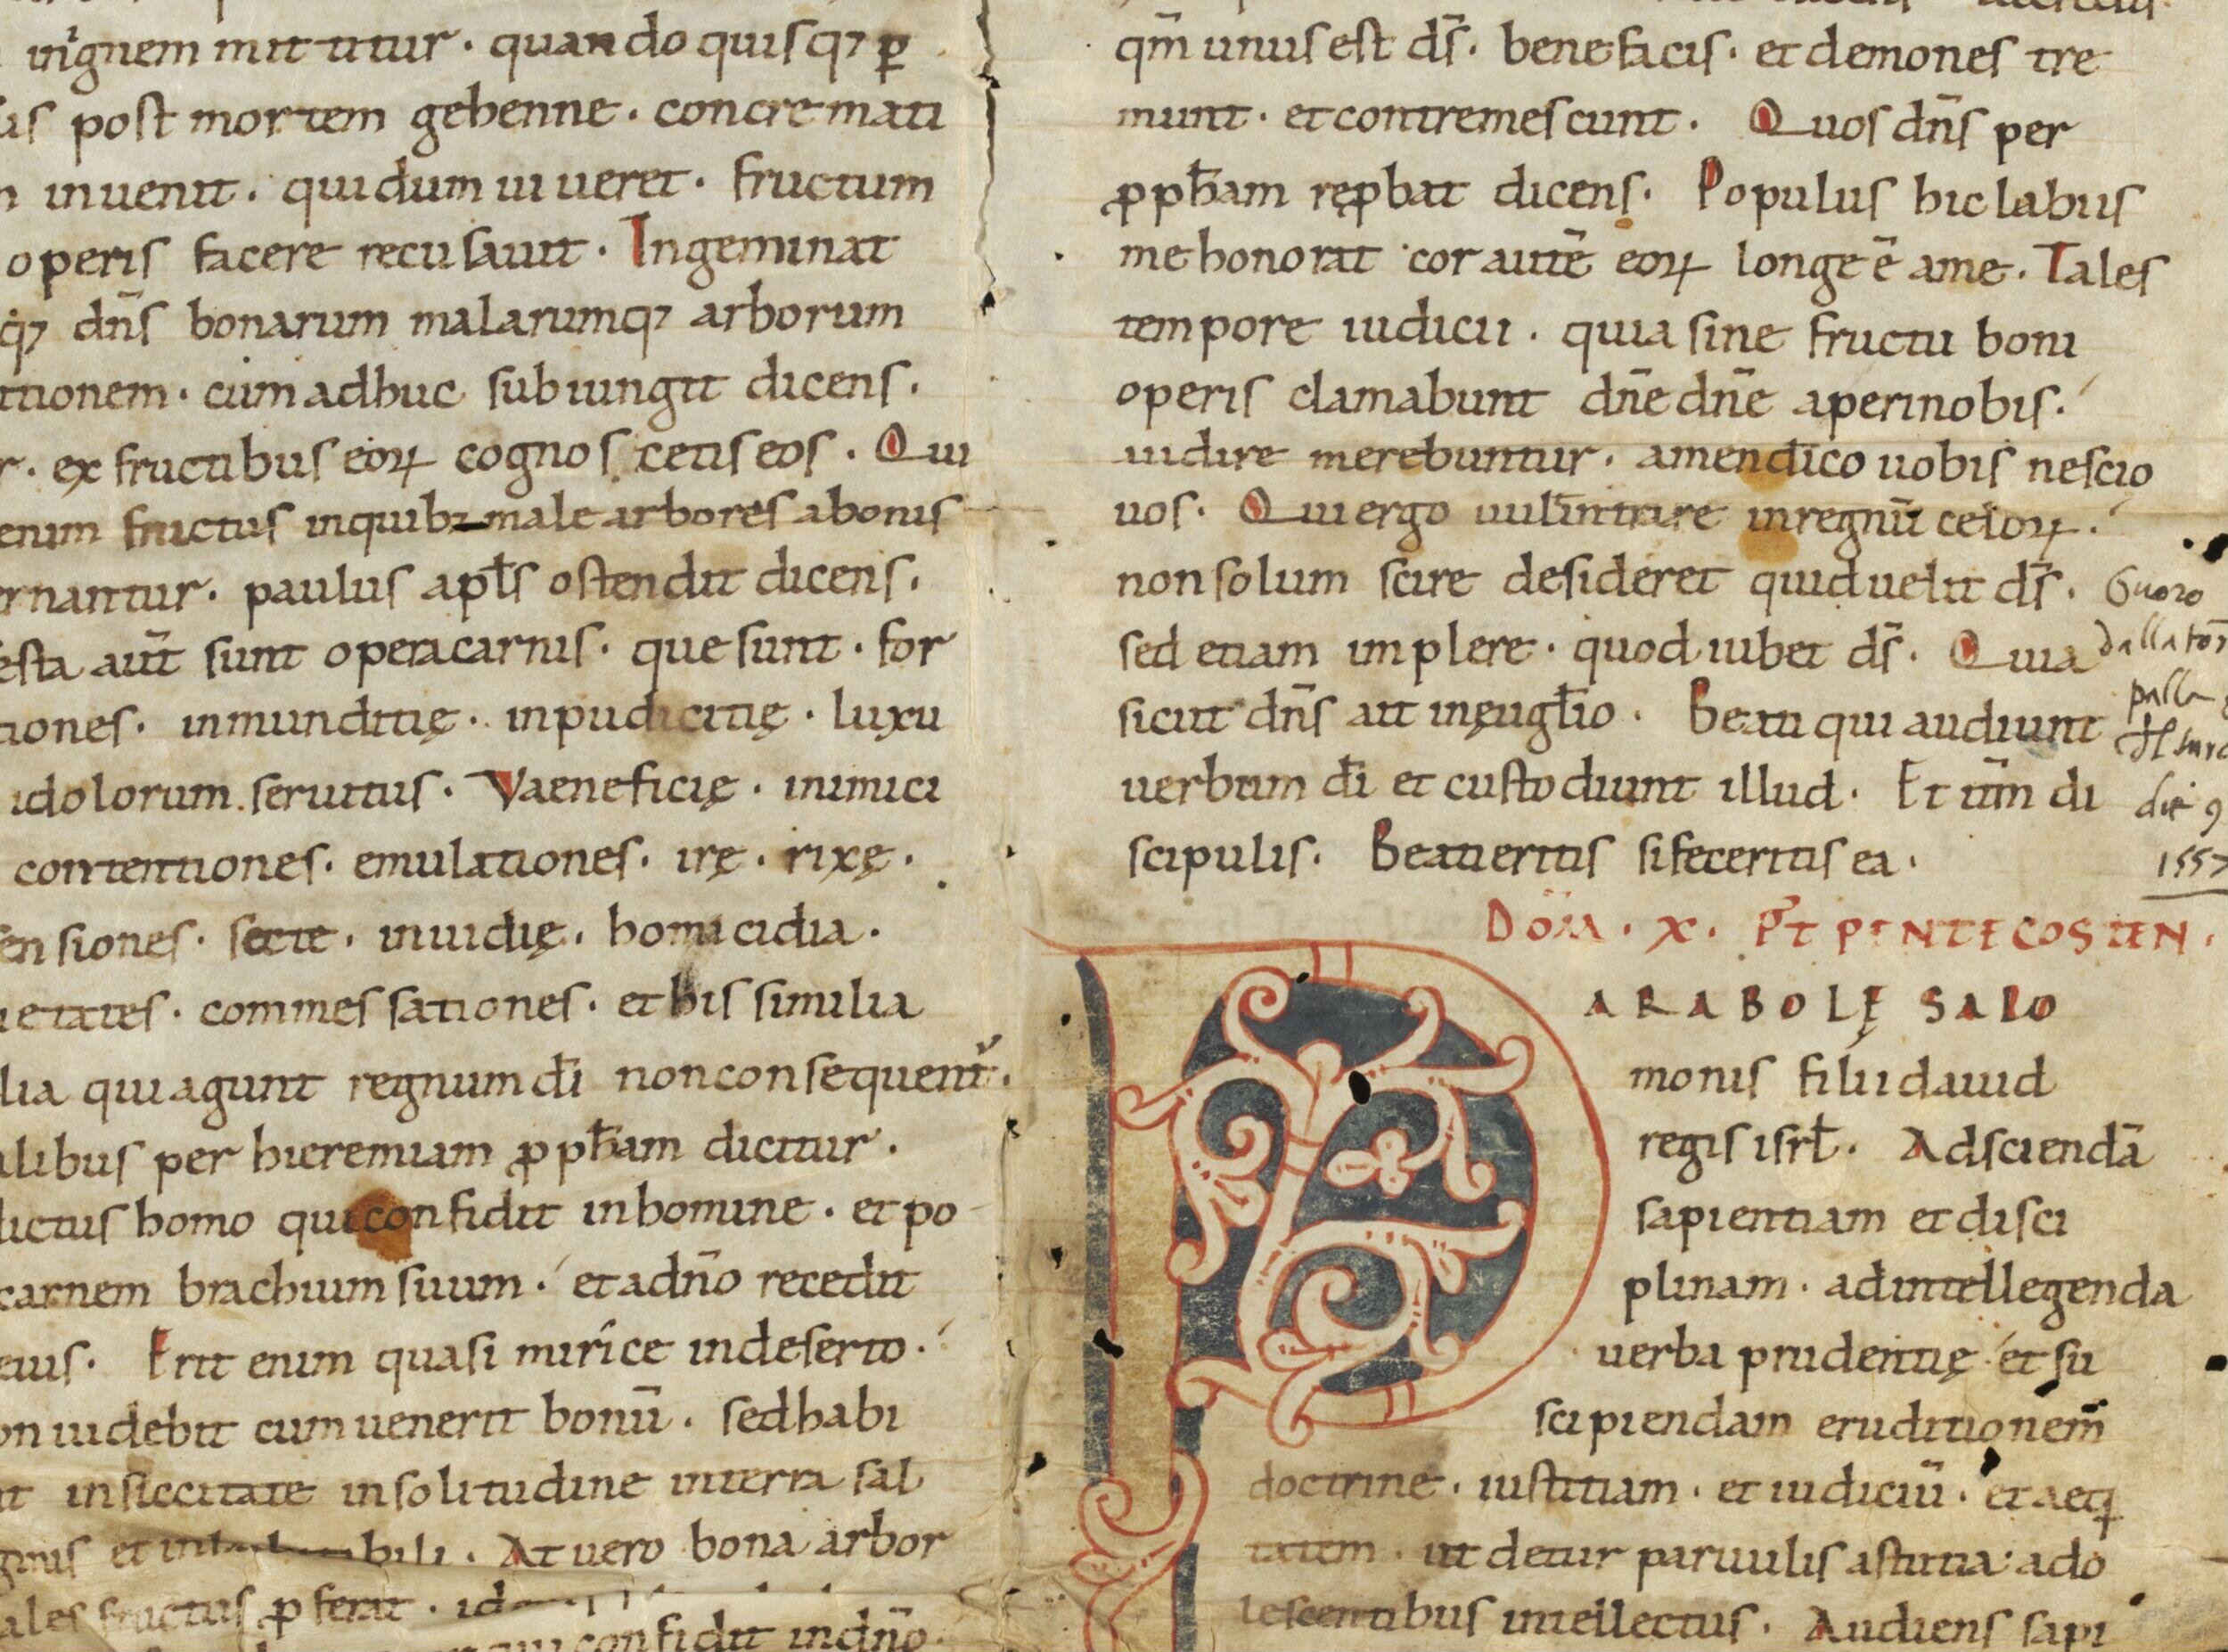 inignem mittitur · quando quisq; p
us post mortem gehenne · concremati
inuenit · quidum uiueret · fructum
operis facere recusauit · Ingeminat
q; dn̄s bonarum malarumq; arborum
tionem · cum adhuc subiungit dicens ·
r · ex fructibus eoꝝ cognoscetis eos · Qui
enim fructus inquibz male arbores abonis
rnantur · paulus apl̄s ostendit dicens ·
esta aut̄ sunt opera carnis · que sunt · for
tiones · inmunditię · inpudicitię · luxu
idolorum seruitus · Vaeneficię · inimici
contentiones · emulationes · irę · rixę ·
ensiones · secte · inuidię · homicidia ·
ietates · commessationes · et his similia
lia qui agunt regnum dī non consequent̄ ·
alibus per hieremiam ꝓph̄am dicitur ·
dictus homo qui confidit inhomine · et po
carnem brachium suum · et adn̄o recedit
eius · Erit enim quasi mirice indeserto ·
on uidebit cum uenerit bonū · sed habi
it insiccitate insolitudine interra sal
ginis et bili · At uero bona arbor
ales fructus ꝓferat ·
confidit indn̄o ·
qm̄ unus est ds̄ · bene facis · et demones tre
munt · et contremescunt · Quos dn̄s per
ꝓph̄am rep̱bat dicens · Populus hic labiis
me honorat · cor autē eoꝝ longe ē ame · Tales
tempore iudicii · quia sine fructu boni
operis clamabunt dn̄e dn̄e aperi nobis ·
udire merebuntur · amen dico uobis nescio
uos · Qui ergo uult̄ intrare inregnū celoꝝ ·
non solum scire desideret quid uelit ds̄ ·
sed etiam implere · quod iubet ds̄ · Quia
sicut dn̄s ait inęugl̄io · Beati qui audiunt
uerbum dī et custodiunt illud · Et itm̄ di
scipulis · Beati eritis si feceritis ea ·
1557
DOM̄ · X · PꝰT PENTECOSTEN ·
PARABOLĘ SALO
monis filii dauid
regis isrl̄ · Ad sciendā
sapientiam et disci
plinam · ad intellegenda
uerba prudentię et su
scipiendam eruditionem
doctrine · iustitiam · et iudiciū · et aeq
tatem · ut detur paruulis astutia · ado
lescentibus intellectus · Audiens sapi